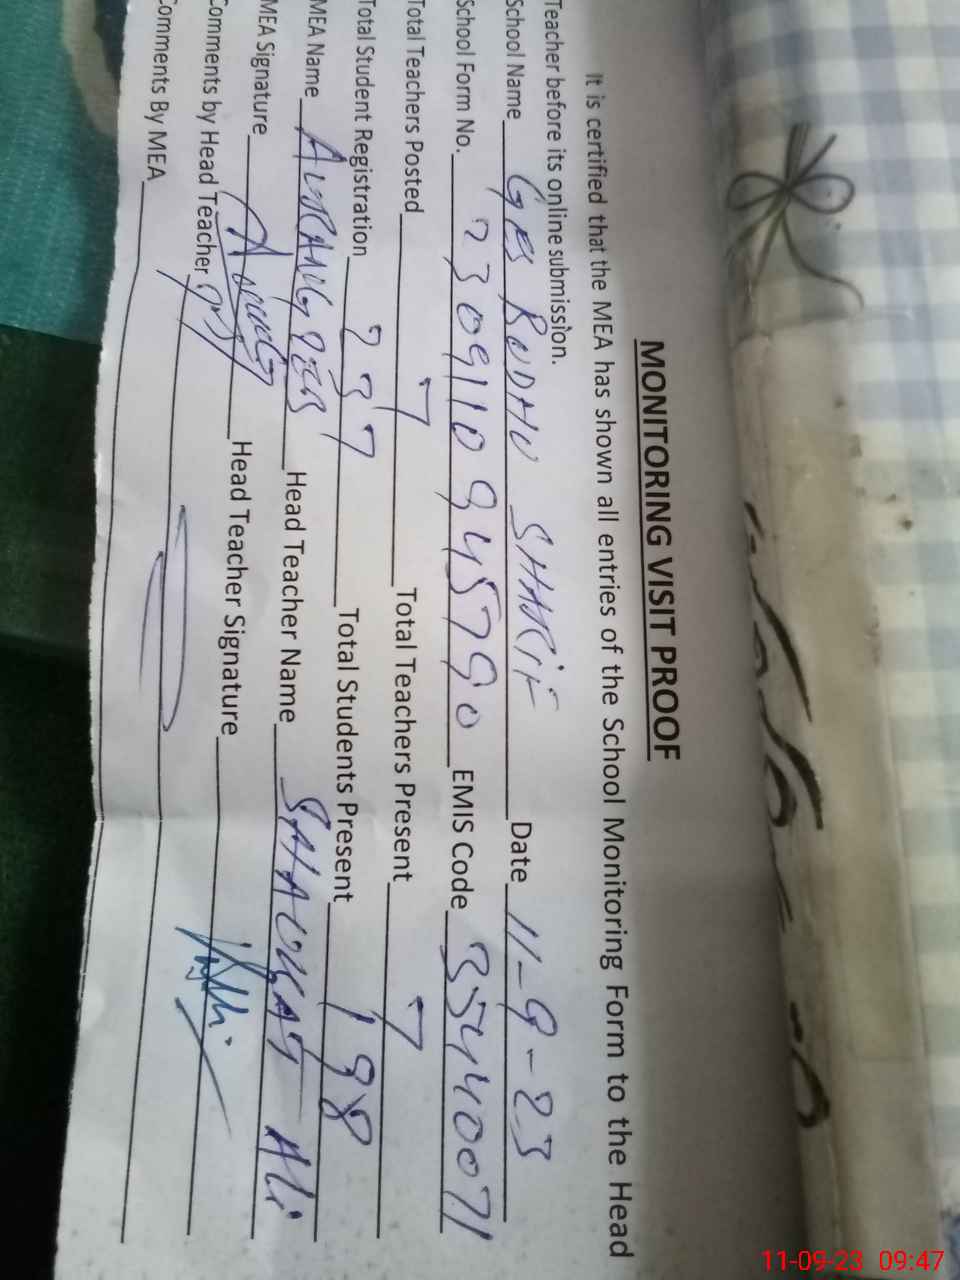 MONITORING VISIT PROOF
It is certified that the MEA has shown all entries of the School Monitoring Form to the Head
Teacher before its online submission.
School Name GES BUDHU SHARIF Date 11-9-23
School Form No. 2309110945790 EMIS Code 35440071
Total Teachers Posted 7 Total Teachers Present 7
Total Student Registration 237 Total Students Present 198
MEA Name AURANGZEB Head Teacher Name SHAUKAT Ali
MEA Signature Head Teacher Signature
Comments by Head Teacher
Comments By MEA
11-09-23 09:47